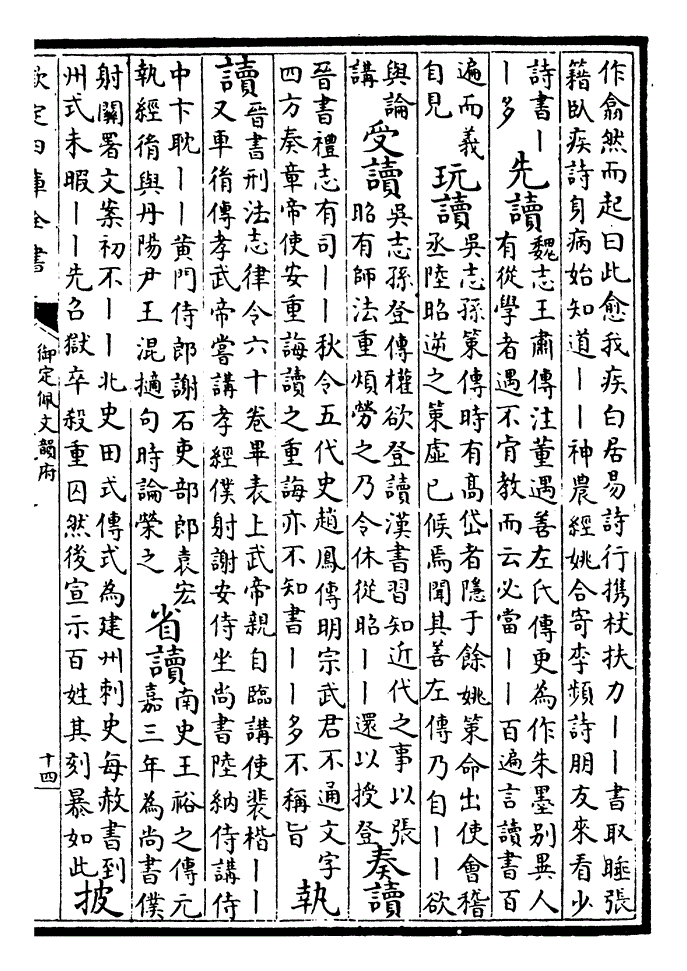 作翕然而起曰此愈我疾白居易詩行攜杖扶力丨丨書取睡張
籍臥疾詩身病始知道丨丨神農經姚合寄李頻詩朋友來看少
詩書丨
丨多
先讀
魏志王肅傳注董遇善左氏傳更為作朱墨別異人
有從學者遇不肯教而云必當丨丨百遍言讀書百
遍而義
自見
玩讀
吳志孫策傳時有高岱者隱于餘姚策命出使會稽
丞陸昭逆之策虛已候焉聞其善左傳乃自丨丨欲
與論
講
受讀
吳志孫登傳權欲登讀漢書習知近代之事以張
昭有師法重煩勞之乃令休從昭丨丨還以授登
奏讀
晉書禮志有司丨丨秋令五代史趙鳳傳明宗武君不通文字
四方奏章帝使安重誨讀之重誨亦不知書丨丨多不稱旨
執
讀
晉書刑法志律令六十卷畢表上武帝親自臨講使裴楷丨丨
又車胤傳孝武帝嘗講孝經僕射謝安侍坐尚書陸納侍講侍
中卞耽丨丨黃門侍郎謝石吏部郎袁宏
執經胤與丹陽尹王混擿句時論榮之
省讀
南史王裕之傳元
嘉三年為尚書僕
射關署文案初不丨丨北史田式傳式為建州刺史每赦書到
州式未暇丨丨先召獄卒殺重囚然後宣示百姓其刻暴如此
披
欽定四庫全書
御定佩文韻府
十四